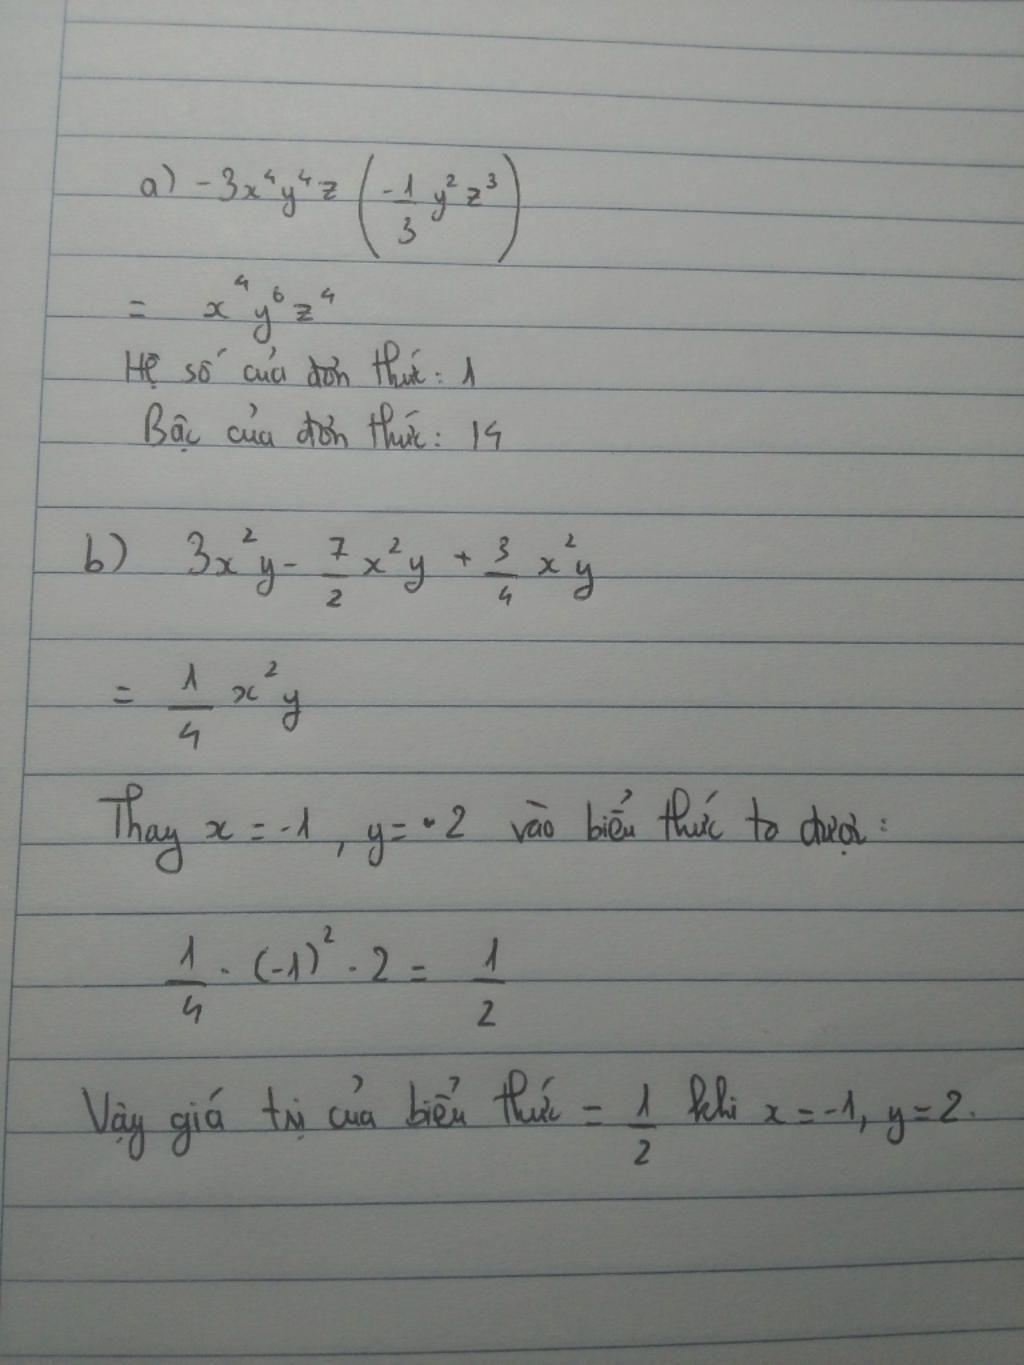 a) -3x⁴y⁴z (-1/3 y²z³)
= x⁴y⁶z⁴
Hệ số của đơn thức: 1
Bậc của đơn thức: 14
b) 3x²y - 7/2 x²y + 3/4 x²y
= 1/4 x²y
Thay x = -1, y = 2 vào biểu thức ta được:
1/4 . (-1)² . 2 = 1/2
Vậy giá trị của biểu thức = 1/2 khi x = -1, y = 2.